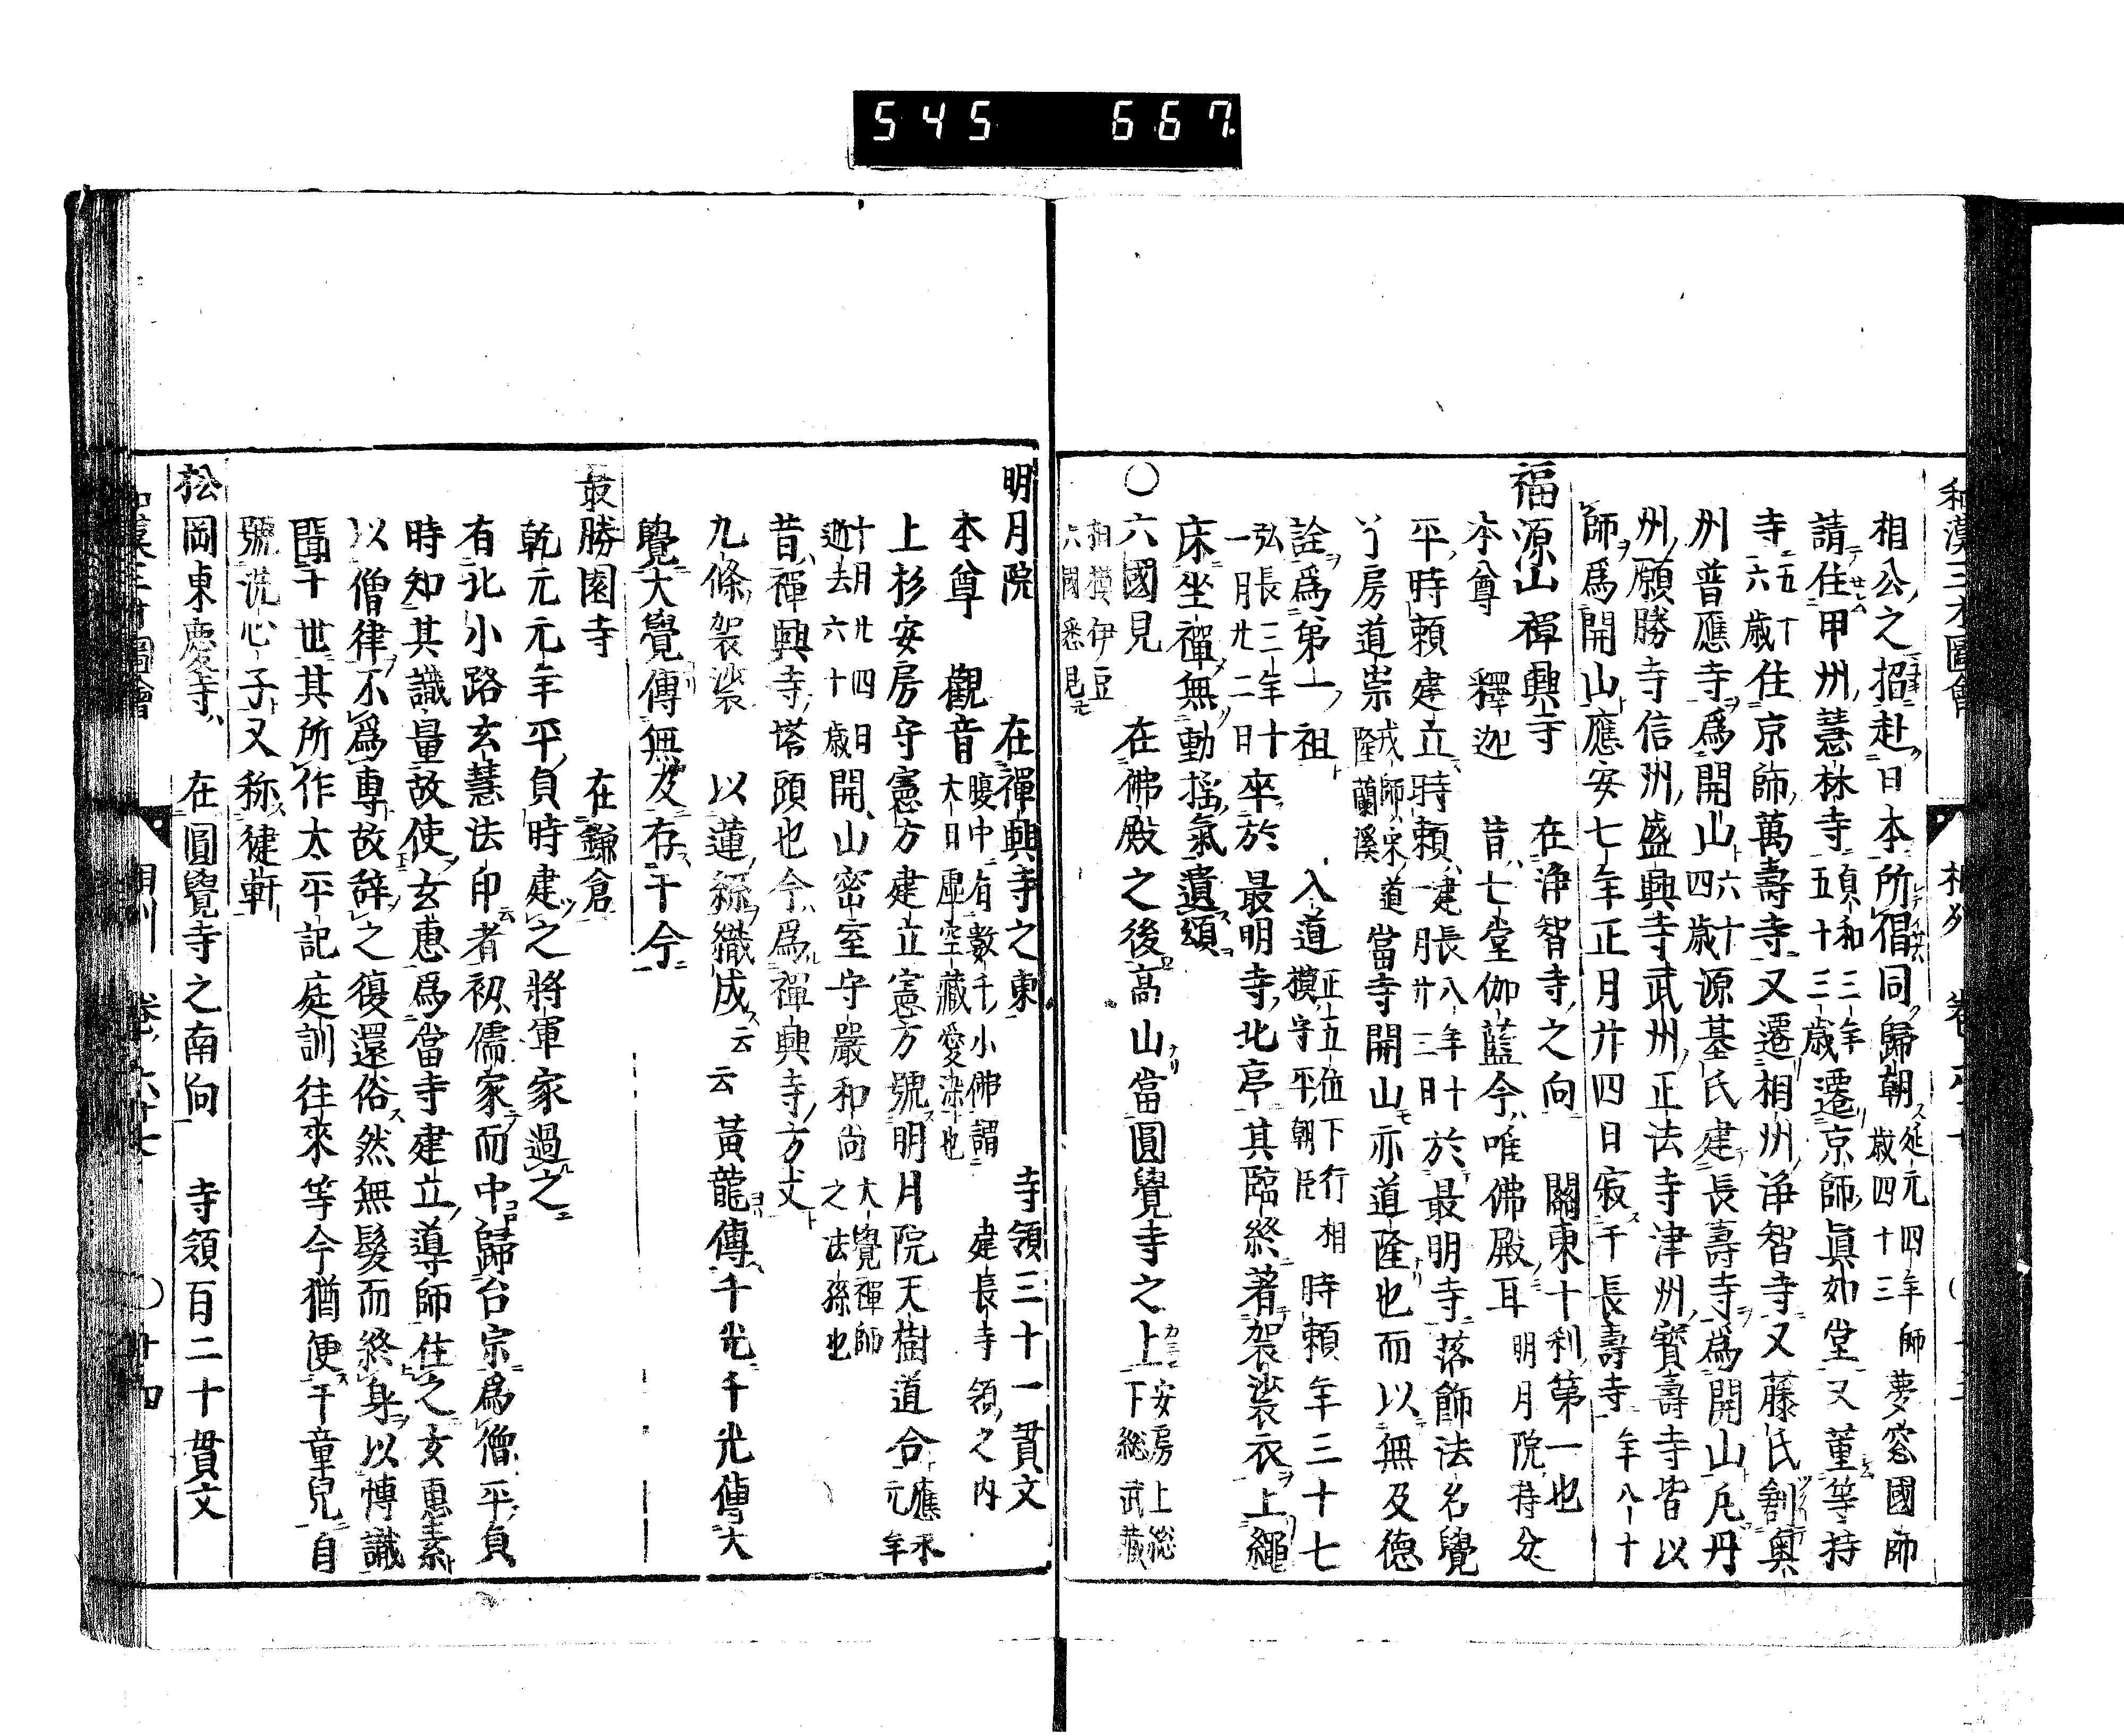 545 667
和漢三才圖會 相州 卷六十七
相公之招赴日本所倡同歸朝 延元四年 歳四十三 師夢窓國師
請住甲州慧林寺 貞和三年 五十三歳 遷京師真如堂又董等持
寺 五十六歳 住京師萬壽寺又遷相州淨智寺又藤氏創奥
州普應寺爲開山 六十四歳 源基氏建長壽寺爲開山凡丹
州願勝寺信州盛興寺武州正法寺津州寶壽寺皆以
師爲開山應安七年正月廿四日寂于長壽寺 年八十
福源山禪興寺 在淨智寺之向 關東十利第一也
本尊 釋迦 昔七堂伽藍今唯佛殿耳 明月院持分
平時頼建立時頼 建長八年十一月廿三日 於最明寺落飾法名覺
了房道崇 戒師宋道隆蘭溪 當寺開山亦道隆也而以無及德
詮爲第一祖 入道 正五位下行相模守平朝臣 時頼年三十七
弘長三年十一月廿二日 卒於最明寺北亭其臨終著袈裟衣上繩
床坐禪無動搖氣遺頌
○六國見 在佛殿之後高山當圓覺寺之上 安房上総下総武藏
相模伊豆六國悉見
明月院 在禪興寺之東 寺領三十一貫文
本尊 觀音 腹中有數千小佛謂大日虚空藏愛染也 建長寺領之内
上杉安房守憲方建立憲方號明月院天樹道合 應永元年
十月廿四日逝去六十歳 開山密室守嚴和尚 大覺禪師之法孫也
昔禪興寺塔頭也今爲禪興寺方丈
九條袈裟 以蓮絲織成云云黃龍傳千光千光傳大
覺大覺傳無及存于今
最勝園寺 在鎌倉
乾元元年平貞時建之將軍家過之
有北小路玄慧法印者初儒家而中歸台宗爲僧平貞
時知其識量故使玄惠爲當寺建立導師住之玄惠素
以僧律不爲專故辭之復還俗然無髮而終身以博識
聞于世其所作太平記庭訓往來等今猶便于童兒自
號洗心子又称健軒
松岡東慶寺 在圓覺寺之南向 寺領百二十貫文
和漢三才圖會 相州 卷六十七 ○廿四